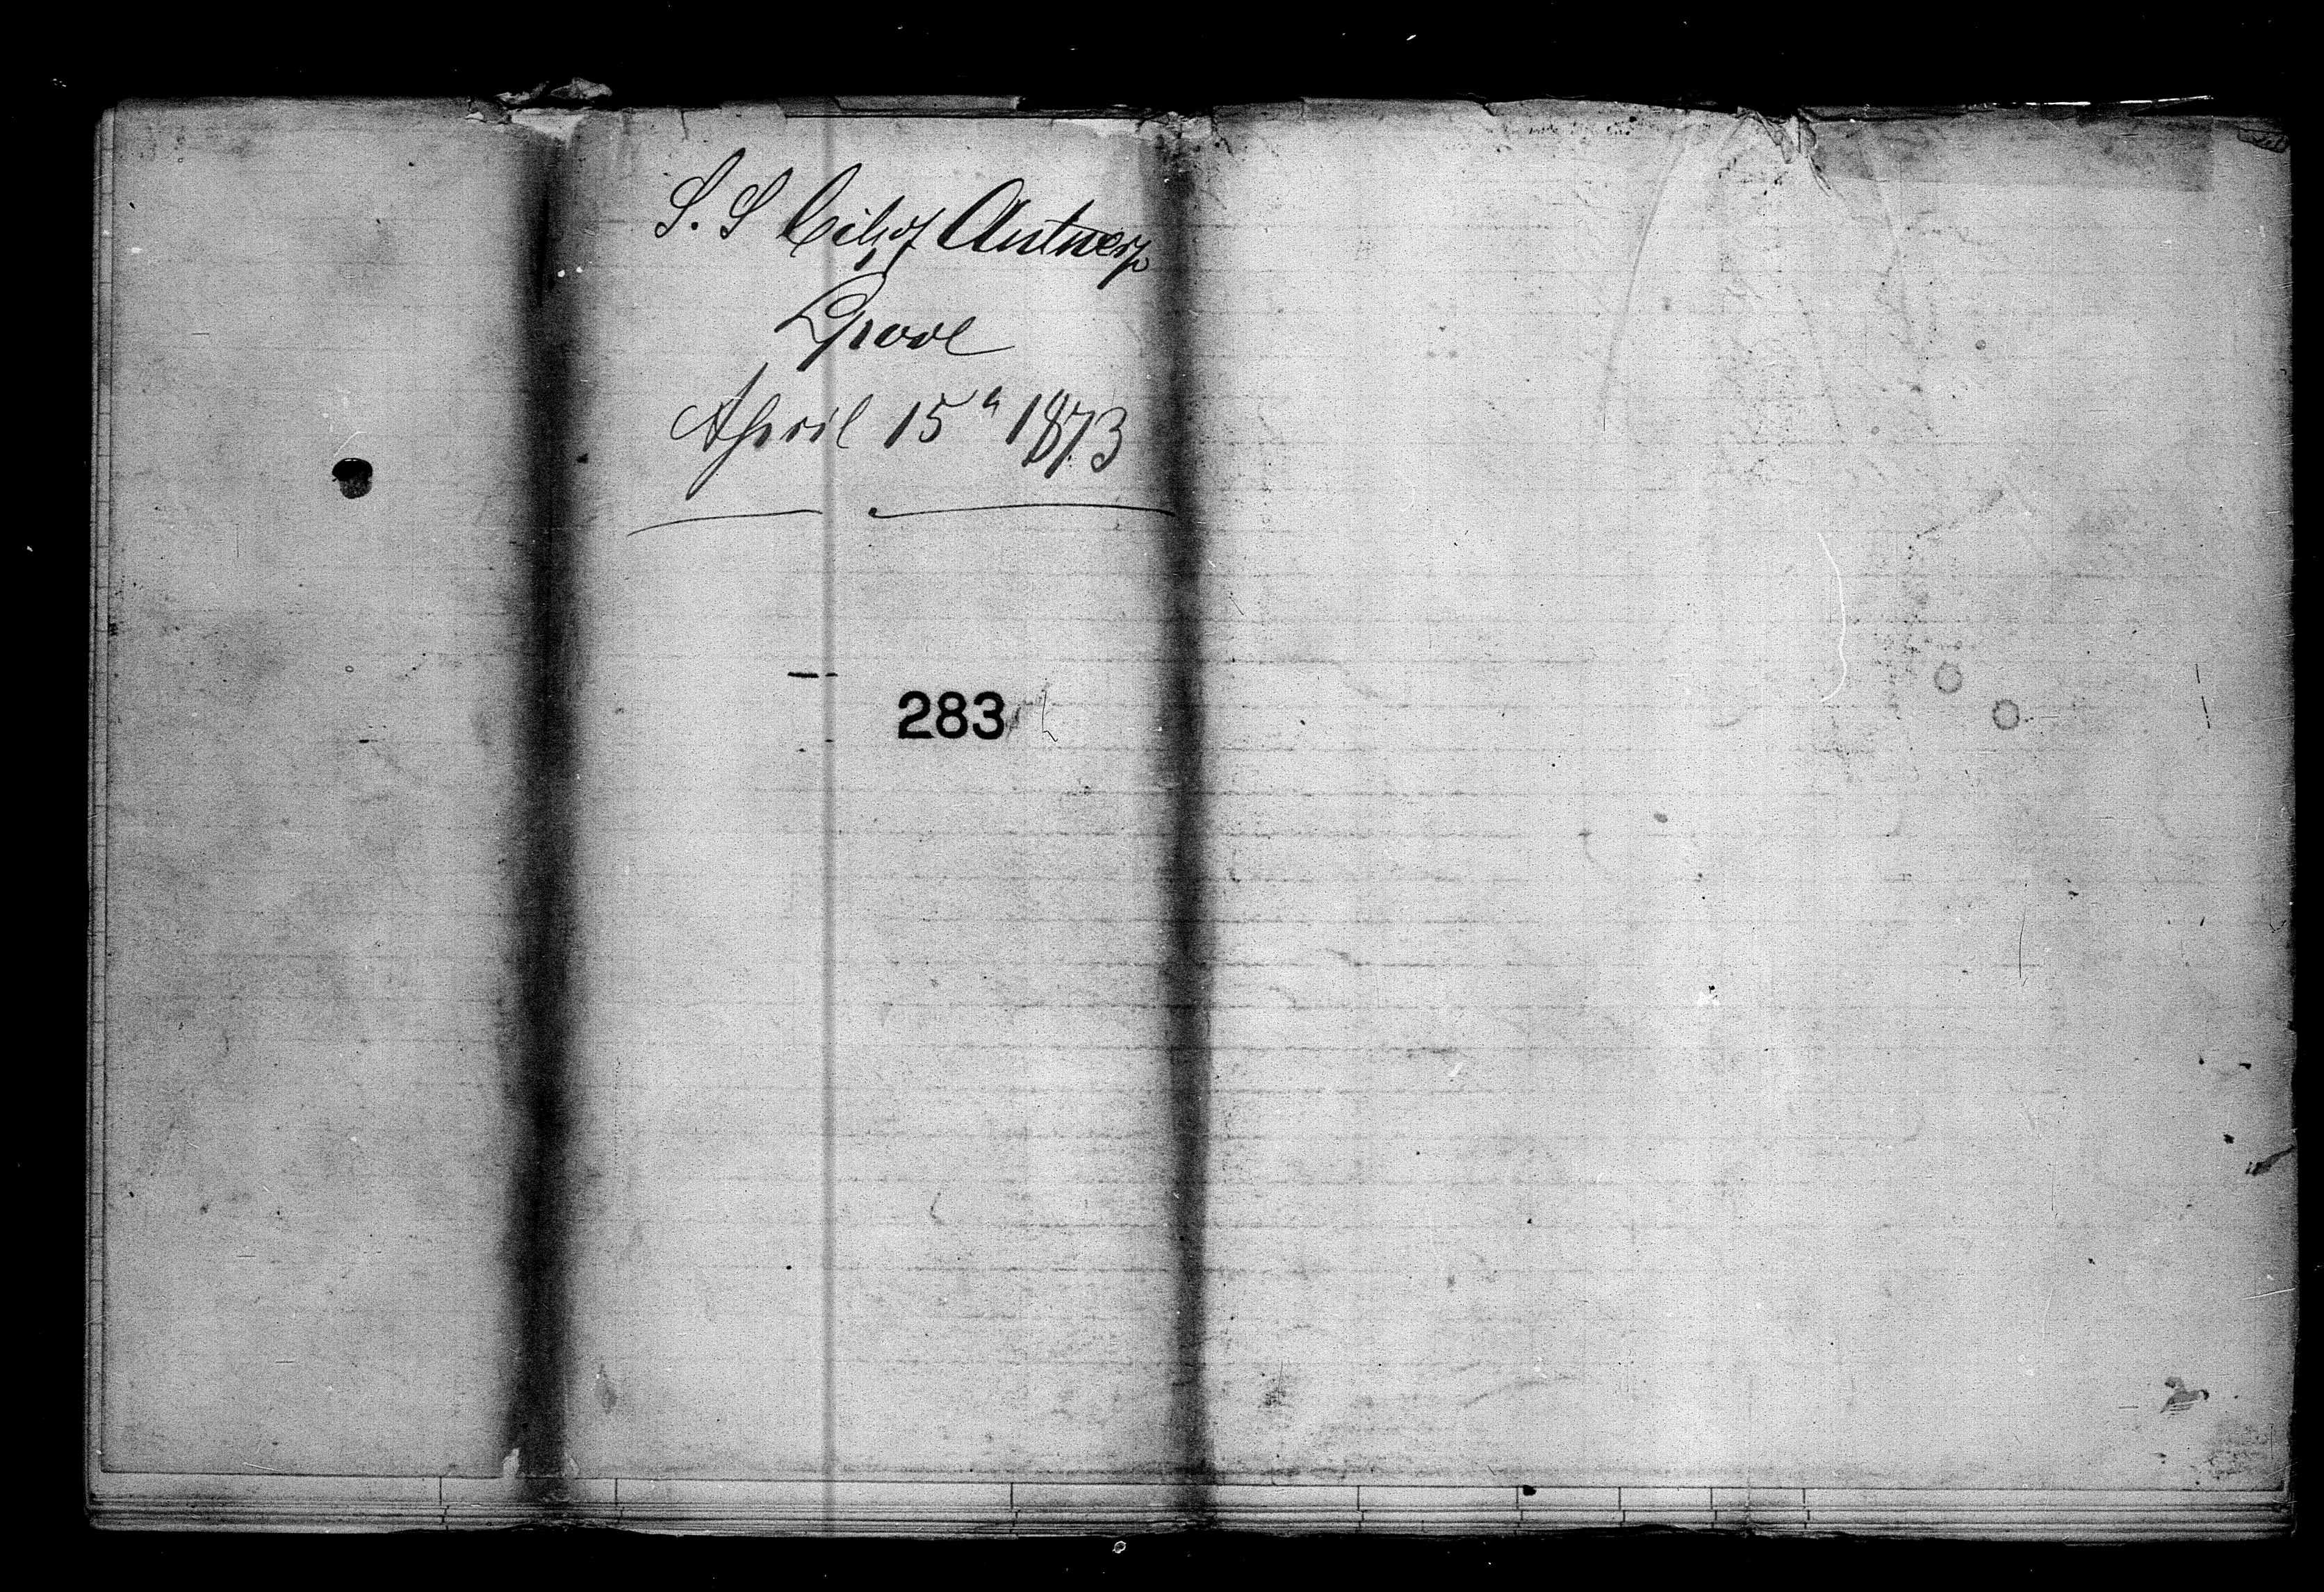 S. S City of Antwerp
Lpool
April 15h 1873
283